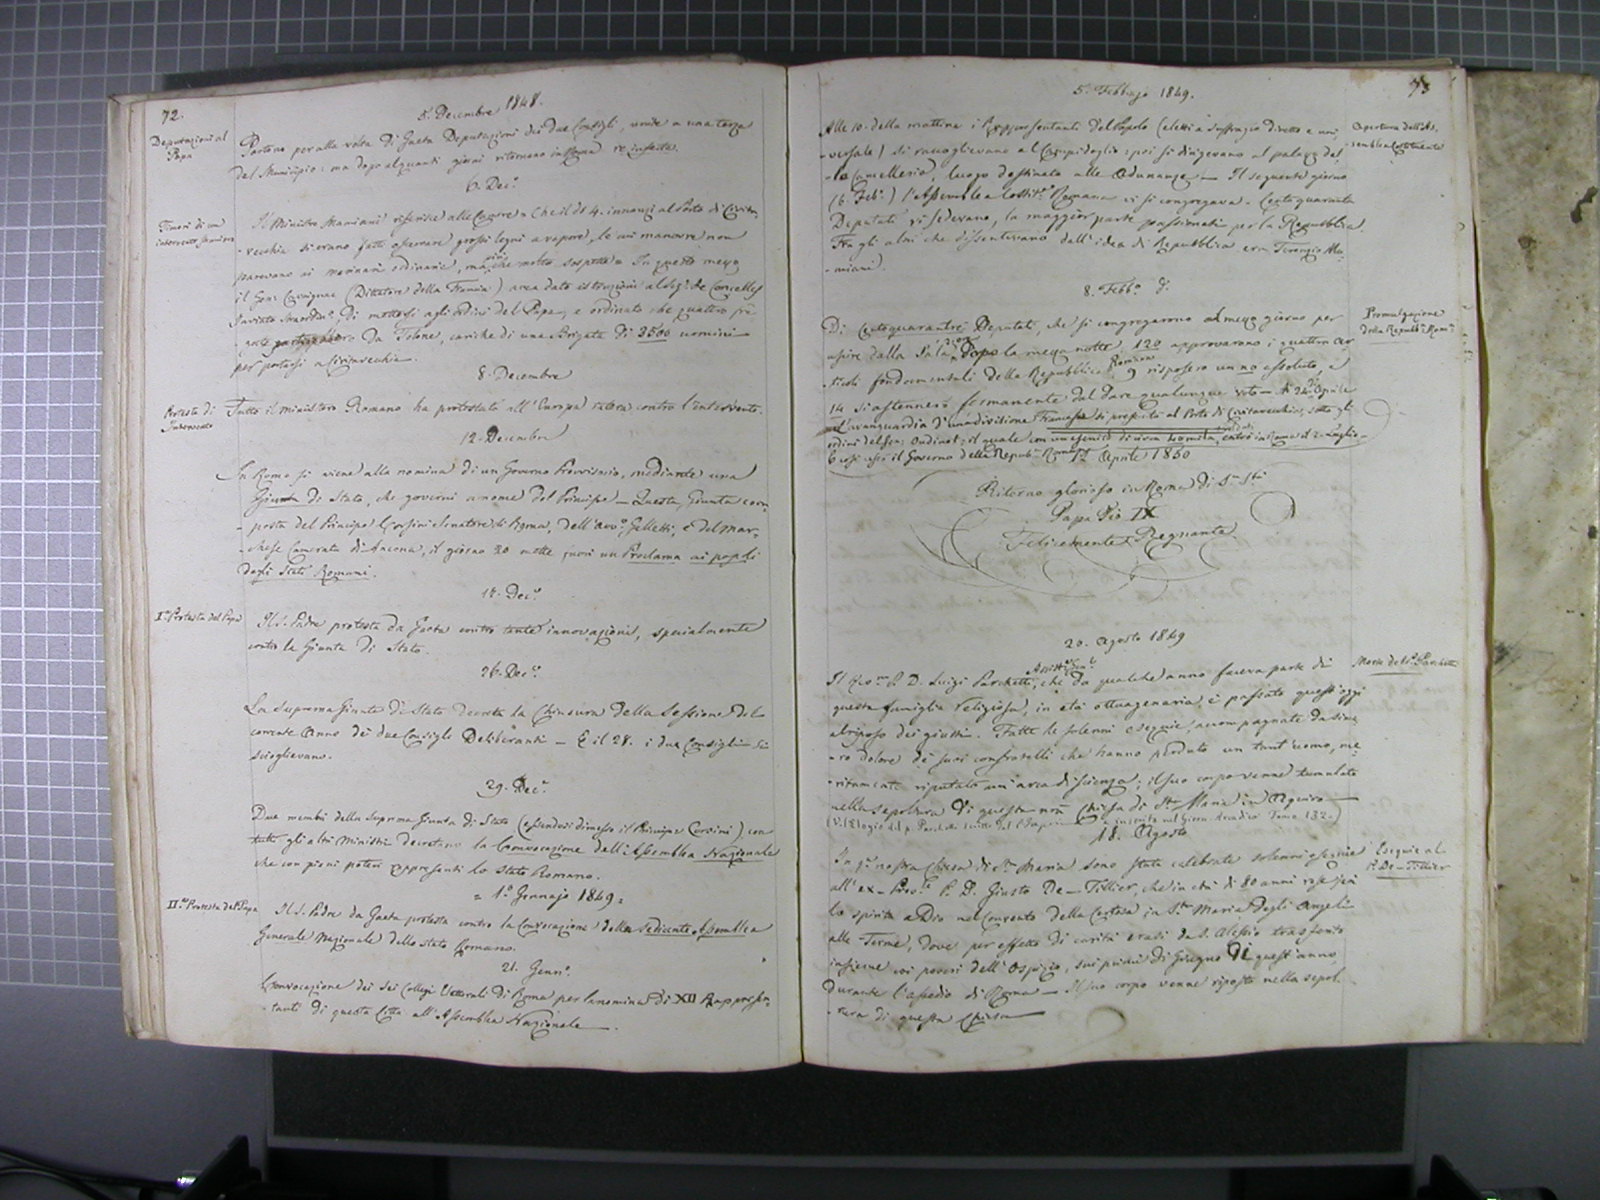 72.
5. Decembre 1848.
Deputazioni al
Papa
Partono per alla volta di Gaeta Deputazioni dei due Consigli, unite a una terza
del Municipio: ma dopo alquanti giorni ritornano in Roma re infecta.
6. Dec.e
Timori di un
intervento straniero
Il Ministro Mamiani riferisce alle Camere = Che il dì 4. innanzi al Porto di Civita-
-vecchia si erano fatti osservare grossi legni a vapore, le cui manovre non
parevano ai marinari ordinarie, ma che molto sospette = In questo mezzo
il Gen. Cavaignac (Dittatore della Francia) avea dato istruzioni al Sig. De Corcelles
Inviato Straord.o di mettersi agli ordini del Papa, e ordinato che quattro fre-
-gate da Tolone, cariche di una Brigata di 3500 uomini
per portarsi a Civitavecchia.
8. Decembre
Protesta di
Intervento
Tutto il ministero Romano ha protestato all'Europa intera contro l'intervento.
12. Decembre
In Roma si viene alla nomina di un Governo Provvisorio, mediante una
Giunta di Stato, che governi a nome del Principe — Questa Giunta com-
-posta del Principe Corsini Senatore di Roma, dell'avv.o Galletti, e del Mar-
-chese Camerata di Ancona, il giorno 20 mette fuori un Proclama ai popoli
degli Stati Romani.
17. Dec.e
I.a Protesta del Papa
Il S. Padre protesta da Gaeta contro tante innovazioni, specialmente
contro la Giunta di Stato.
26. Dec.e
La Suprema Giunta di Stato decreta la Chiusura della Sessione del
corrente Anno dei due Consigli Deliberanti — E il 28. i due Consigli si
scioglievano.
29. Dec.e
Due membri della Suprema Giunta di Stato (essendosi dimesso il Principe Corsini) con
tutti gli altri Ministri decretano la Convocazione dell'Assemblea Nazionale
che con pieni poteri rappresenti lo Stato Romano.
= 1.o Gennajo 1849 =
II.a Protesta del Papa
Il S. Padre da Gaeta protesta contro la Convocazione della sedicente Assemblea
Generale Nazionale dello Stato Romano.
21. Genn.o
Convocazione dei sei Collegi Elettorali di Roma per la nomina di XII Rappresen-
-tanti di questa Città all'Assemblea Nazionale.
73
5. Febbrajo 1849.
Apertura dell'As-
semblea Costituente
Alle 10. della mattina i Rappresentanti del Popolo (eletti a suffragio diretto e uni-
-versale) si raccoglievano al Campidoglio: poi si dirigevano al palazzo del-
-la Cancelleria, luogo destinato alle Adunanze — Il seguente giorno
(6. Feb.o) l'Assemblea Costit.e Romana vi si congregava. Centoquaranta
Deputati vi sedevano, la maggior parte passionati per la Repubblica.
Fra gli altri che dissentivano dall'idea di Repubblica era Terenzio Ma-
-miani.
8. Febb.o d.o
Promulgazione
della Repubb.a Rom.a
Di Centoquarantrè Deputati, che si congregarono al mezzo giorno per
uscire dalla Sala dopo la mezza notte, 120 approvarono i quattro ar-
-ticoli fondamentali della Repubblica Romana 9 risposero un no assoluto, e
14 si astennero fermamente dal dare qualunque voto — A 24 Aprile
l'avanguardia d'una divisione Francese si presentò al Porto di Civitavecchia, sotto gli
ordini del Gen. Oudinot; il quale con un esercito di circa 40 mila, entrò in Roma il 2. Luglio
E così cessò il Governo della Repub.a Rom.a
12 Aprile 1850
Ritorno glorioso in Roma di S. Stà
Papa Pio IX
Felicemente Regnante.
20. Agosto 1849
Morte del P. Parchetti
Il R.mo P. D. Luigi Parchetti, Assist.e Gen.e che da qualche anno faceva parte di
questa famiglia religiosa, in età ottuagenaria, è passato quest'oggi
al riposo dei giusti. Fatte le solenni esequie, accompagnate da since-
-ro dolore de' suoi confratelli che hanno perduto un tant'uomo, me-
-ritamente riputato un'arca di scienza; il suo corpo venne tumulato
nella sepoltura di questa nra Chiesa di S.ta Maria in Aquiro
18. Agosto
Esequie al
P. De-Tillier
In q.a nostra Chiesa di S.ta Maria sono state celebrate solenni esequie
all'ex-Prov.le P. D. Giusto De-Tillier, che in età di 80 anni rese jeri
lo spirito a Dio nel Convento della Certosa in S.ta Maria degli Angeli
alle Terme, dove per effetto di carità erasi da S. Alessio trasferito
insieme coi poveri dell'Ospizio, sui primi di Giugno di quest'anno,
durante l'assedio di Roma — Il suo corpo venne riposto nella sepol-
-tura di questa Chiesa